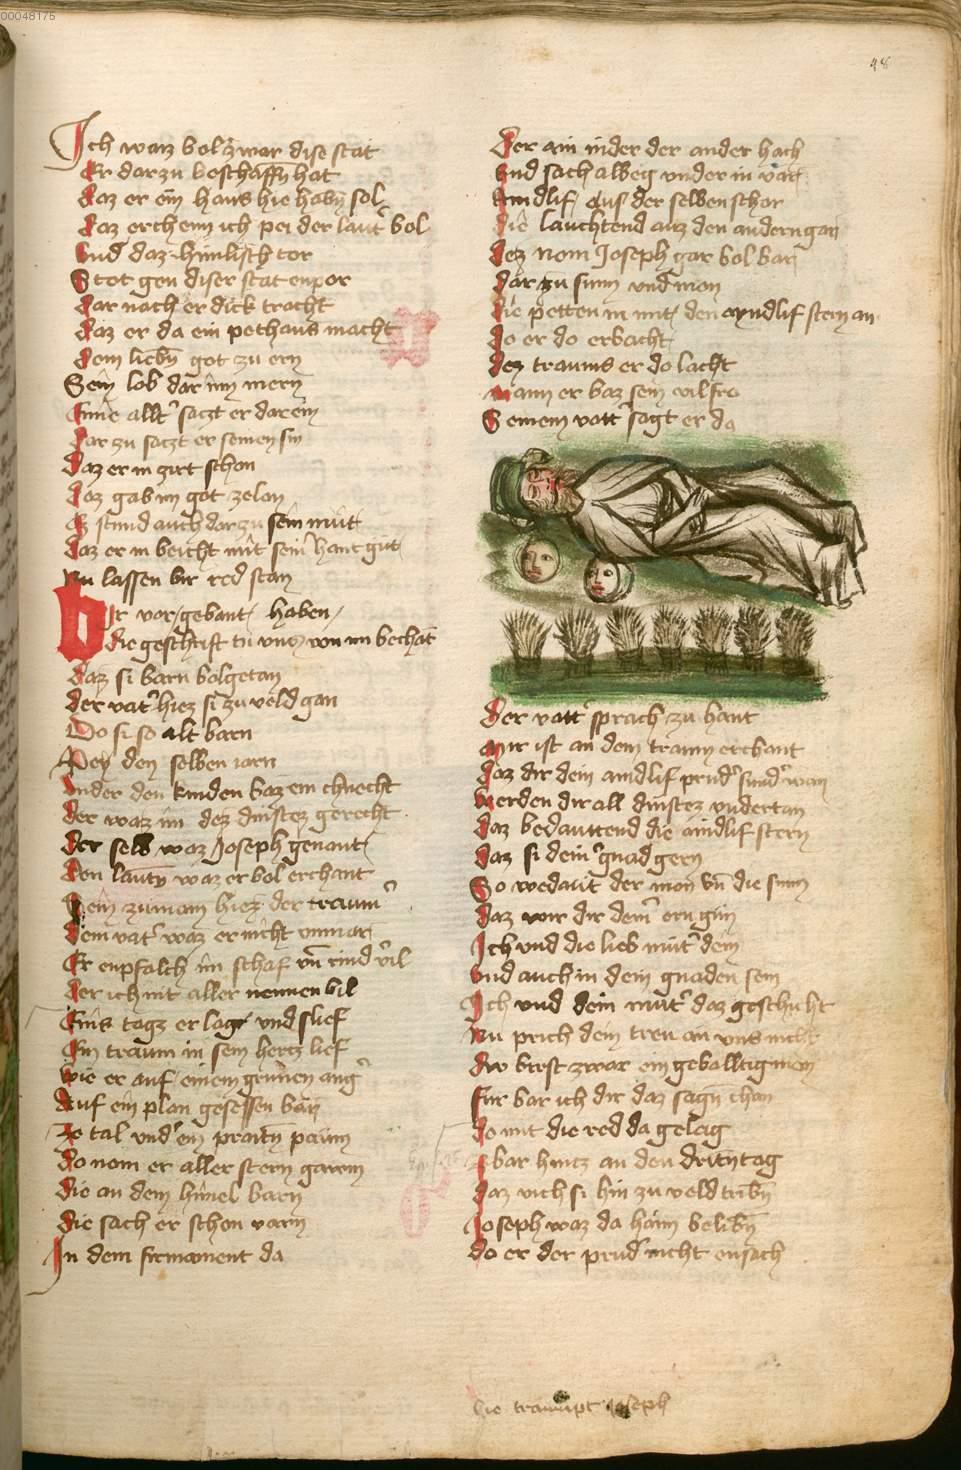 00048175
48
Ich waz wol zwar dise stat
Er darzu beschaffn hat
daz er ein haus hie habn sol
daz erchenn ich pei der laut wol
Und daz himlisch tor
Stet gen diser stat enpor
dar nach er dick tracht
daz er da ein pethaus macht
dem liebn got zu ern
Sein lob dar inn mern
allt saczt er darein
dar zu saczt er seinen sin
daz er in zirt schon
daz gab im got zelon
Ez stund auch darzu sein mut
daz er in beicht mit sein hant gut
Nu lassen wir red stan
Wir vor gebant haben
die geschrift tu uns von im bechant
daz si warn wolgetan
der vat hiez si zu veld gan
Do si so alt warn
Pey den selben iarn
Under den kinden waz ein chnecht
der waz im dez dinstez gerecht
der selb waz Joseph genant
den lautn waz er wol erchant
Sein zunam hiez der traum
dem vat waz er nicht unmar
Er enpfalch im schaf vn rind vil
der ich nit aller nennen wil
Eins tags er lag und slief
Ein traum in sein hercz lief
wie er auf einem grunen ang
Auf ein plan gesessen wan
Ze tal und ein praitn paum
do nom er aller stern gawm
die an dem himel warn
die sach er schon varn
In dem firmament da
Der ain inder der ander hach
Und sach albeg under in var
Aindlif aus der selben schar
die lauchtend auz den andern gan
dez nom Joseph gar wol war
dar zu sunn und mon
die petten in mit den ayndlif stern an
Do er do erwacht
dez traums er do lacht
wann er waz sein vil fro
Seinem vatt sagt er do
Der vatt sprach zu hant
mir ist an dem traum erchant
daz dir dein aindlif prud sunder wan
werden dir all dinstez undertan
daz bedauttend die aindlif stern
daz si dein gnad gern
So wedaut der mon vn die sunn
daz wir dir dein ern gun
Ich und die lieb mut dein
und auch in dein gnaden sein
Ich und dein mut daz geschicht
Nu prich dein treu an uns nicht
dw wirst zwar ein gewalltig man
fur war ich dir daz sagn chan
do mit die red da gelag
Ez war hincz an den dritn tag
daz vich si hin zu veld tribn
Joseph waz da haim belibn
do er der prud nicht ensach
die traumpt Joseph